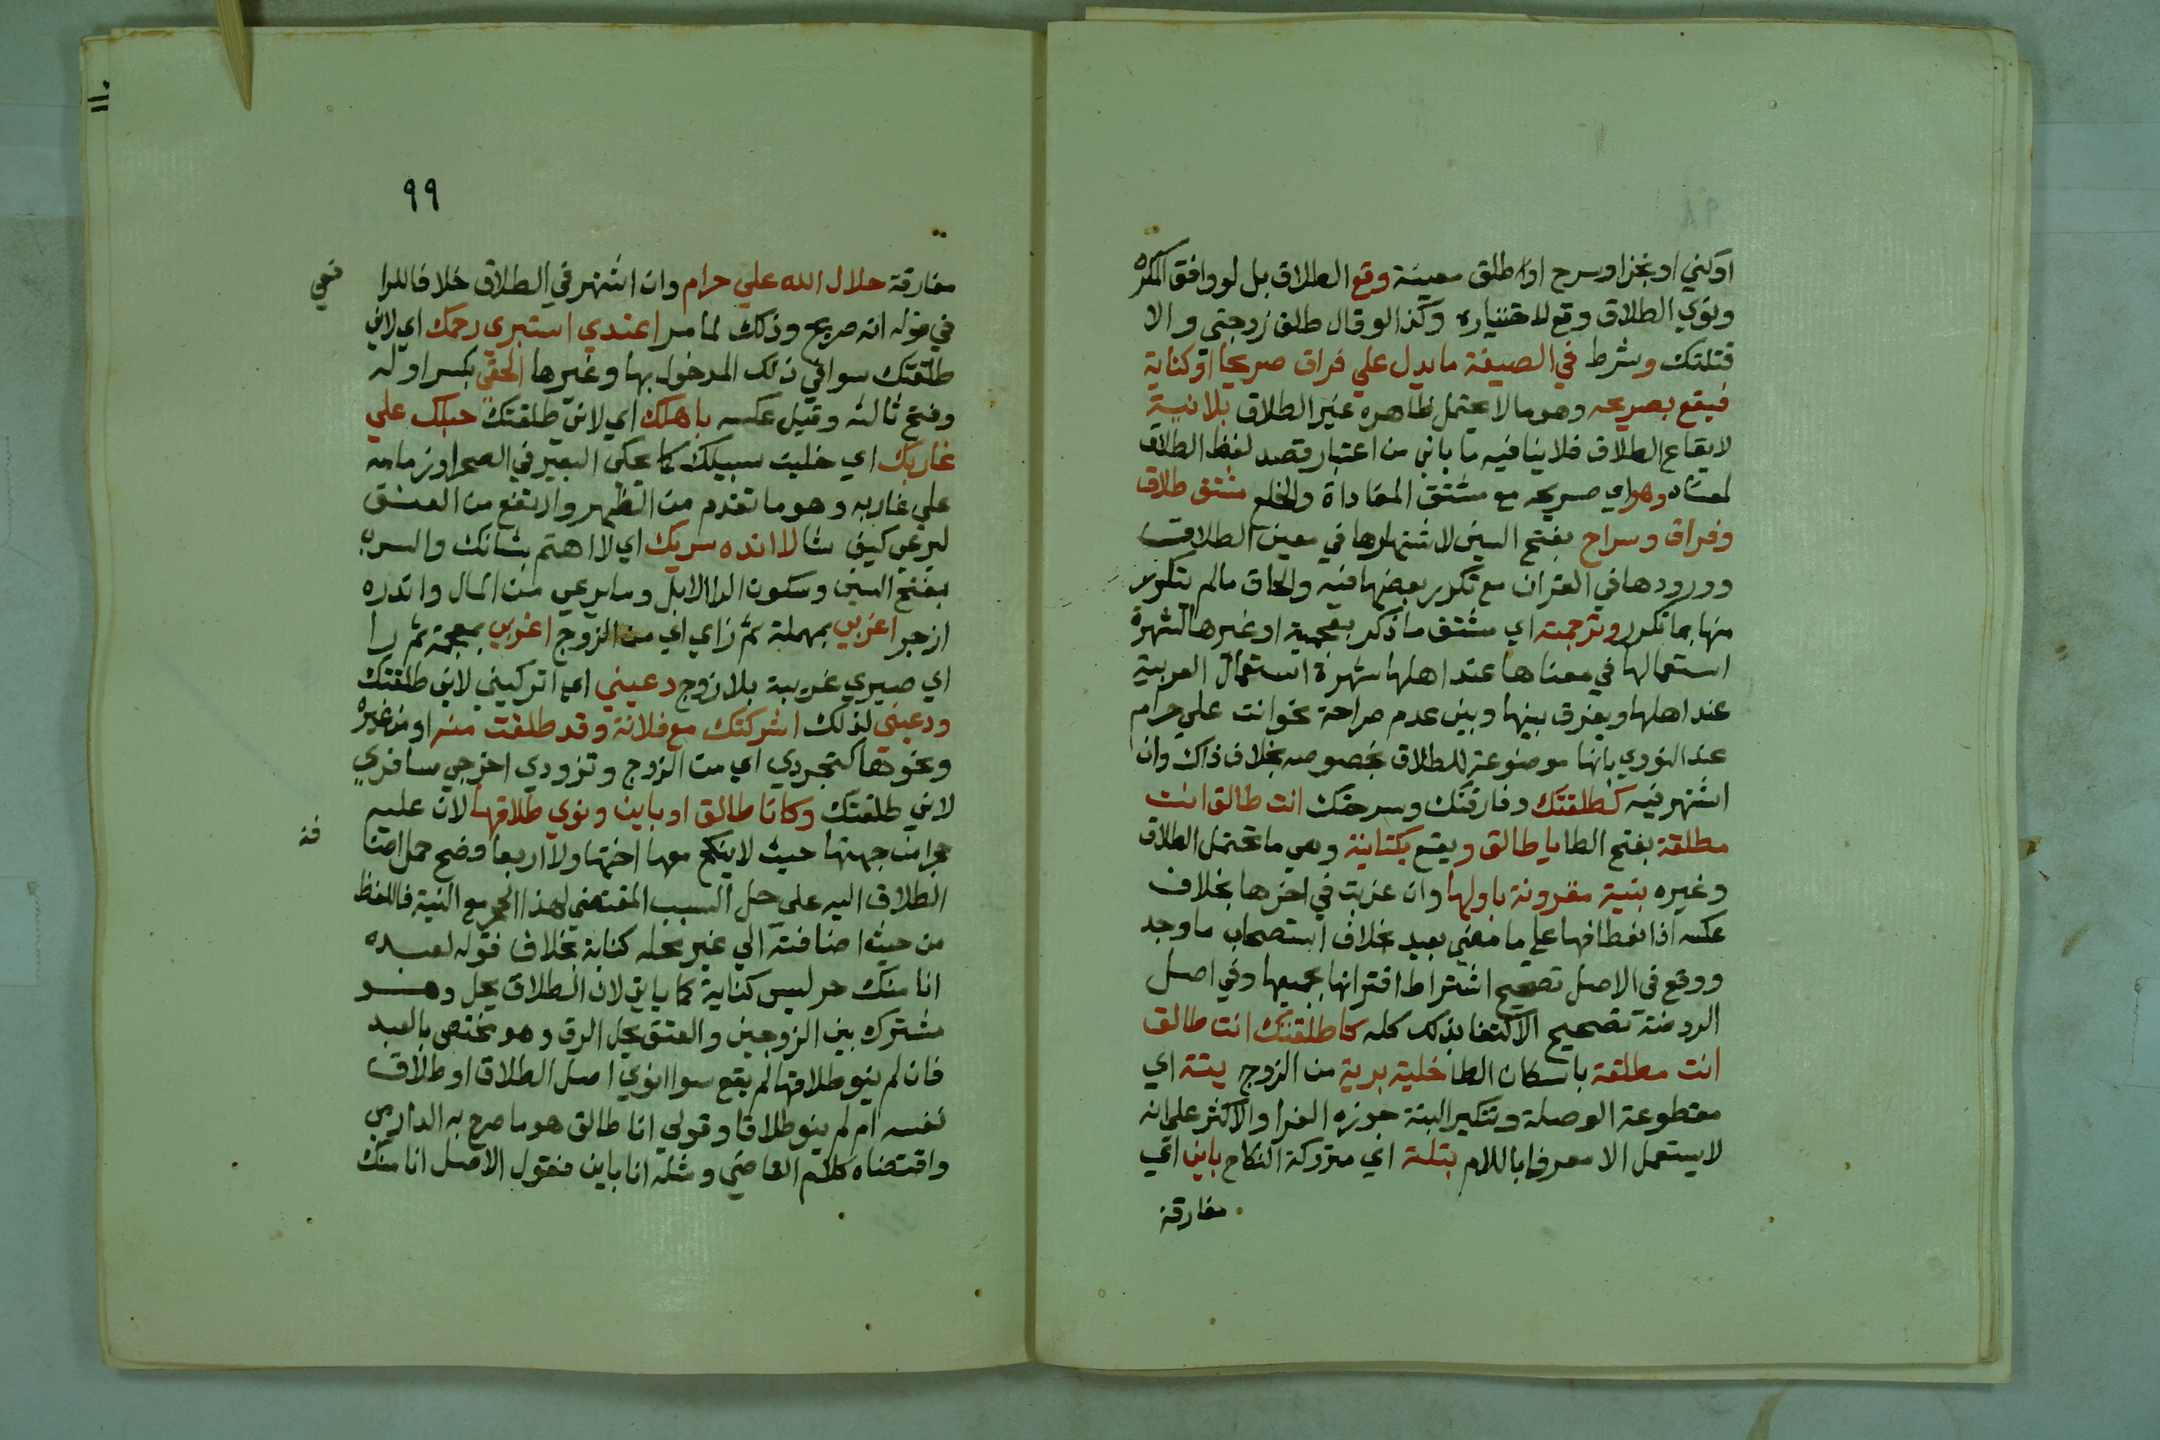 اوكني او نجز او سرح او طلق معينة وقع الطلاق بل لو وافق المكره
ونوي الطلاق وقع لاختياره وكذا لو قال طلق زوجتي والا
قتلتك وشرط في الصيغة ما يدل علي فراق صريحا او كناية
فيقع بصريحه وهو ما لا يحتمل ظاهره غير الطلاق بلا نية
لايقاع الطلاق فلا ينافيه ما ياتي من اعتبار قصد لفظ الطلاق
لمعناه وهو اي صريحه مع مشتق المفاداة والخلع مشتق طلاق
وفراق وسراح بفتح السين لاشتهارها في معني الطلاق
وورودها في القران مع تكرر بعضها فيه والحاق ما لم يتكرر
منها بما تكرر وترجمته اي مشتق ما ذكر بعجمية او غيرها لشهرة
استعمالها في معناها عند اهلها شهرة استعمال العربية
عند اهلها ويفرق بينها وبين عدم صراحة نحو انت علي حرام
عند النووي بانها موضوعة للطلاق بخصوصه بخلاف ذاك وان
اشتهر فيه كطلقتك وفارقتك وسرحتك انت طالق انت
مطلقة بفتح الطا يا طالق ويقع بكناية وهي ما تحتمل الطلاق
وغيره بنية مقرونة باولها وان عزبت في اخرها بخلاف
عكسه اذ انعطافها علي ما مضي بعيد بخلاف استصحاب ما وجد
ووقع في الاصل تصحيح اشتراط اقترانها بجميعها وفي اصل
الروضة تصحيح الاكتفا بذلك كله كاطلقتك انت طالق
انت مطلقة باسكان الطا خلية برية من الزوج بتة اي
مقطوعة الوصلة وتنكير البتة جوزه الفرا والاكثر علي انه
لا يستعمل الا معرفا باللام بتلة اي متروكة النكاح باين اي
مفارقة
٩٩
مفارقة حلال الله علي حرام وان اشتهر في الطلاق خلافا للرا
فعي
في قوله انه صريح وذلك لما مر اعتدي استبري رحمك اي لاني
طلقتك سوا في ذلك المدخول بها وغيرها الحقي بكسر اوله
وفتح ثالثه وقيل عكسه باهلك اي لاني طلقتك حبلك علي
غاربك اي خليت سبيلك كما يخلي البعير في الصحرا وزمامه
علي غاربه وهو ما تقدم من الظهر وارتفع من العنق
ليرعي كيف شا لا انده سربك اي لا اهتم بشانك والسرب
بفتح السين وسكون الرا الابل وما يرعي من المال واندره
ازجر اعزبي بمهملة ثم زاي اي من الزوج اغربي بمعجمة ثم را
اي صيري غريبة بلا زوج دعيني اي اتركيني لاني طلقتك
ودعيني لذلك اشركتك مع فلانة وقد طلقت منه او من غيره
ونحوها كتجردي اي من الزوج وتزودي اخرجي سافري
لاني طلقتك وكانا طالق او باين ونوي طلاقها لان عليه
حجرا من جهتها حيث لا ينكح معها اختها ولا اربعا فصح حمل اضا
فة
الطلاق اليه علي حل السبب المقتضي لهذا الحجر مع النية فاللفظ
من حيث اضافته الي غير محله كناية بخلاف قوله لعبده
انا منك حر ليس كناية كما ياتي لان الطلاق يحل وهو
مشترك بين الزوجين والعتق يحل الرق وهو مختص بالعبد
فان لم ينو طلاقها لم يقع سوا نوي اصل الطلاق او طلاق
نفسه ام لم ينو طلاقا وقولي انا طالق هو ما صرح به الدارمي
واقتضاه كلام القاضي ومثله انا باين فقول الاصل انا منك